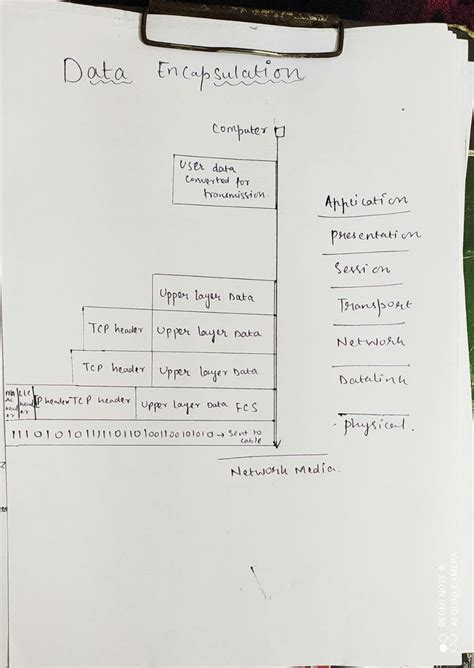 Data Encapsulation
Computer
User data
converted for
transmission.
Application
Presentation
Session
Upper layer Data
Transport
TCP header Upper layer Data
Network
TCP header Upper layer Data
Datalink
MAC header LLC header IP header TCP header Upper layer Data FCS
Physical
1110101011110110100110010100 → Sent to
cable
Network Media.
REDMI NOTE 8
AI QUAD CAMERA